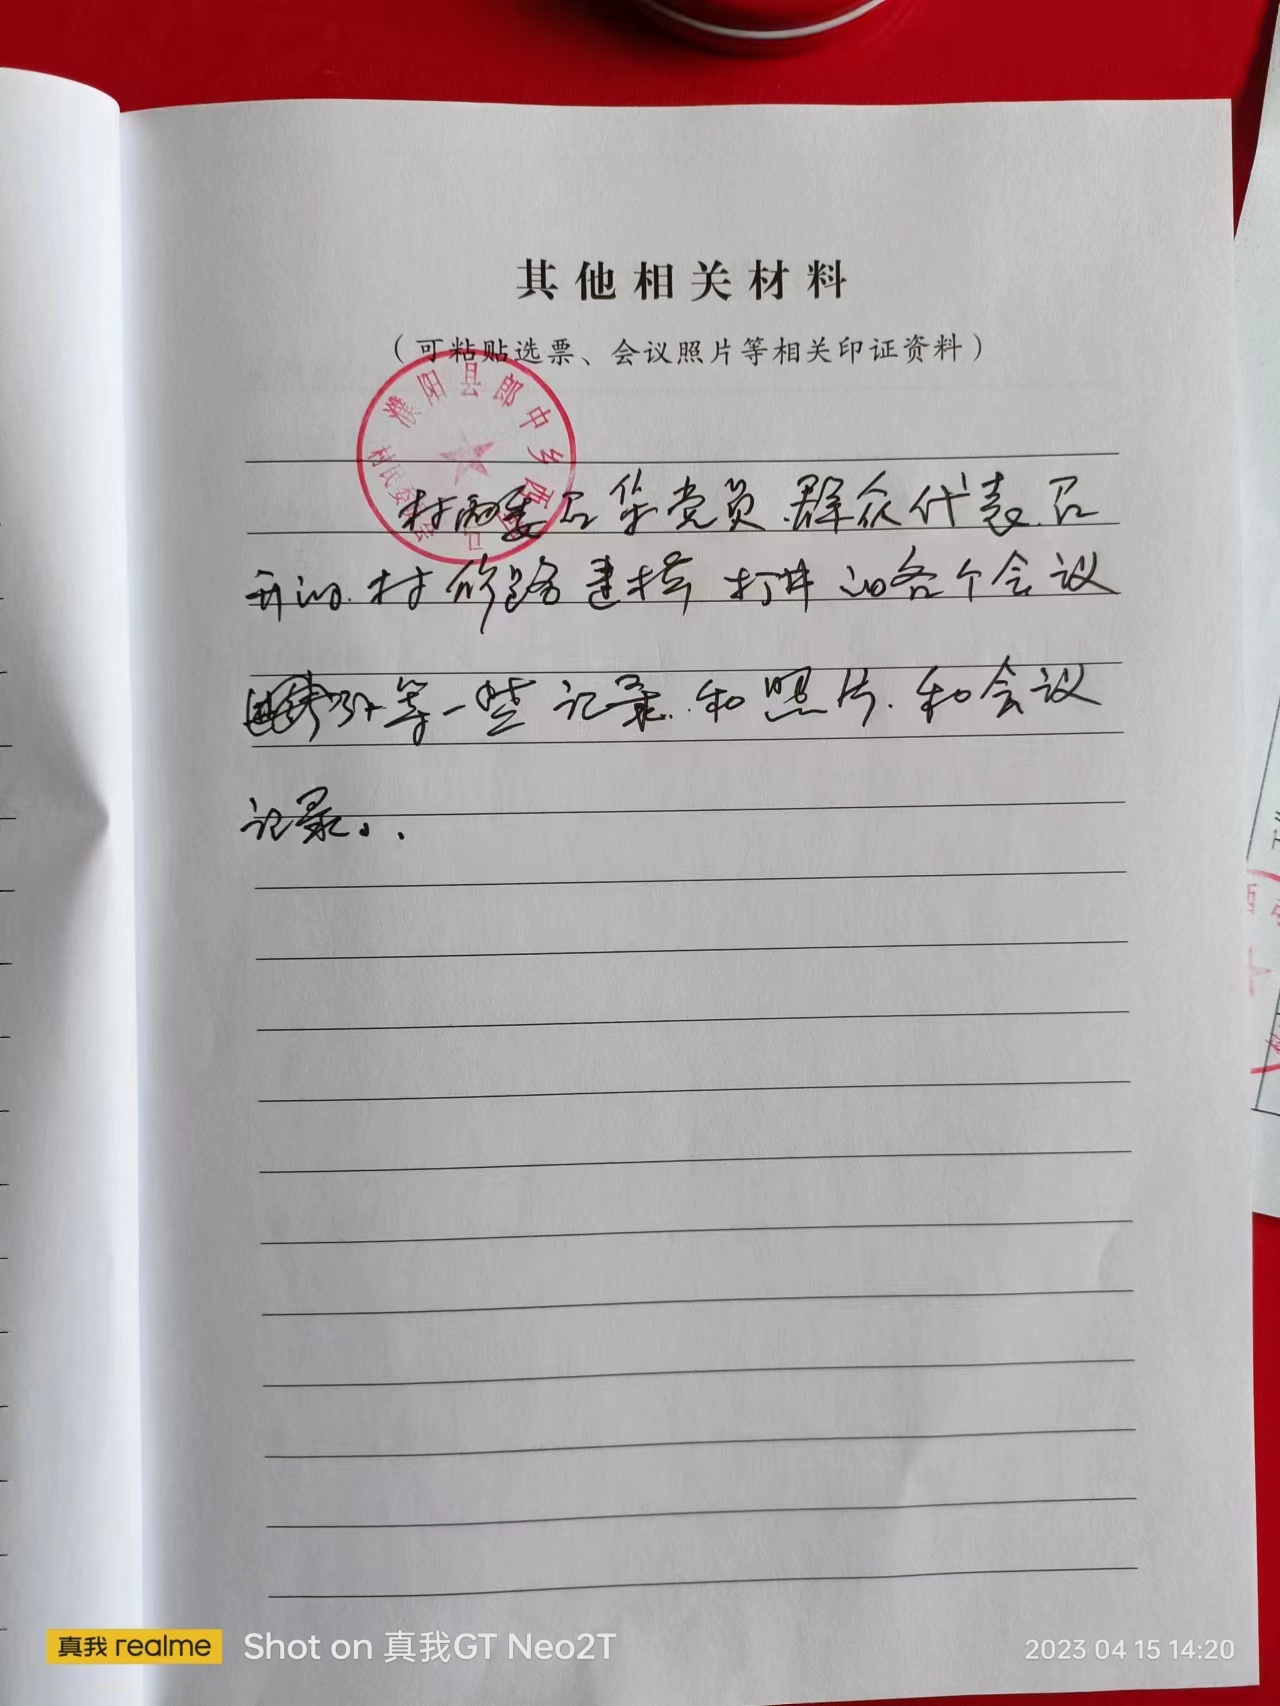 其他相关材料
（可粘贴选票、会议照片等相关印证资料）
濮阳县郎中乡西
村民委
村两委召集党员.群众代表.召
开的.村修路建桥 打井的各个会议
等一些记录.和照片.和会议
记录..
真我 realme
Shot on 真我GT Neo2T
2023 04 15 14:20